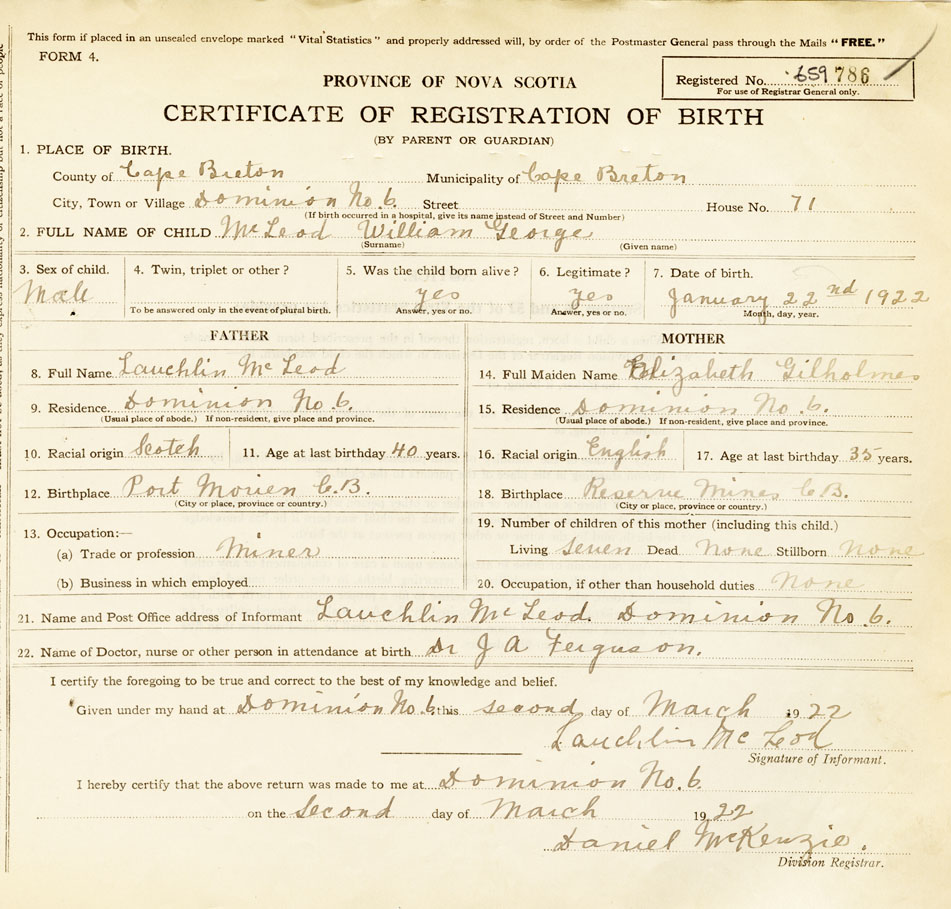 This form if placed in an unsealed envelope marked "Vital Statistics" and properly addressed will, by order of the Postmaster General pass through the Mails "FREE."
FORM 4.
PROVINCE OF NOVA SCOTIA
Registered No. 659786
For use of Registrar General only.
CERTIFICATE OF REGISTRATION OF BIRTH
(BY PARENT OR GUARDIAN)
1. PLACE OF BIRTH.
County of Cape Breton Municipality of Cape Breton
City, Town or Village Dominion No. 6. Street House No. 71
(If birth occurred in a hospital, give its name instead of Street and Number)
2. FULL NAME OF CHILD McLeod William George
(Surname) (Given name)
3. Sex of child. 4. Twin, triplet or other? 5. Was the child born alive? 6. Legitimate? 7. Date of birth.
Male yes yes January 22nd 1922
To be answered only in the event of plural birth. Answer, yes or no. Answer, yes or no. Month, day, year.
FATHER MOTHER
8. Full Name Lauchlin McLeod 14. Full Maiden Name Elizabeth Gilholmes
9. Residence. Dominion No. 6. 15. Residence Dominion No. 6.
(Usual place of abode.) If non-resident, give place and province. (Usual place of abode.) If non-resident, give place and province.
10. Racial origin Scotch 11. Age at last birthday 40 years. 16. Racial origin English 17. Age at last birthday 35 years.
12. Birthplace Port Morien C.B. 18. Birthplace Reserve Mines C.B.
(City or place, province or country.) (City or place, province or country.)
13. Occupation:— 19. Number of children of this mother (including this child.)
(a) Trade or profession Miner Living seven Dead None Stillborn None
(b) Business in which employed 20. Occupation, if other than household duties None
21. Name and Post Office address of Informant Lauchlin McLeod. Dominion No. 6.
22. Name of Doctor, nurse or other person in attendance at birth Dr J A Ferguson.
I certify the foregoing to be true and correct to the best of my knowledge and belief.
Given under my hand at Dominion No. 6. this second day of March 1922
Lauchlin McLeod
Signature of Informant.
I hereby certify that the above return was made to me at Dominion No. 6.
on the Second day of March 1922
Daniel McKenzie.
Division Registrar.